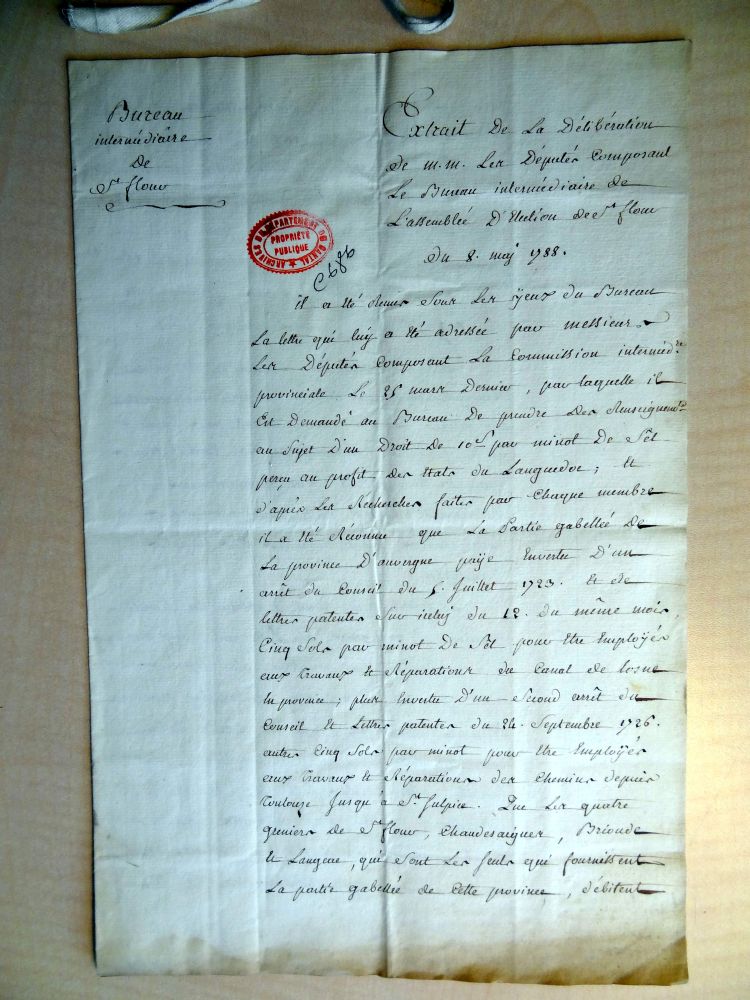 Bureau
intermédiaire
de
St flour
Extrait De La Délibération
de m.m. Les Députés Composant
Le Bureau intermédiaire de
L'assemblée D'Election de St flour
du 8. maj 1788.
ARCHIVES DU DEPARTEMENT DU CANTAL
PROPRIÉTÉ
PUBLIQUE
il a été Remis sous Les yeux du Bureau
La lettre qui luy a été adressée par messieurs
Les Députés Composant La Commission interméd.re
provinciale Le 25 mars Dernier, par laquelle il
Est Demandé au Bureau De prendre des Renseignem.ts
au Sujet D'un Droit de 10.s par minot De Sel
perçu au profit des Etats du Languedoc; Et
d'après Les Recherches faites par Chaque membre
il a été Réconnu que La Partie gabellée De
La province D'auvergne paÿe Envertu D'un
arrêt du Conseil du 5. Juillet 1723. Et de
lettres patentes Sur iceluy du 12. du même mois,
Cinq Sols par minot De Sel pour Etre Employés
aux Travaux Et Réparations du Canal de
En province; plus Envertu D'un Second arrêt du
Conseil Et Lettres patentes du 24. Septembre 1726.
autres Cinq Sols par minot pour Etre Employés
aux Travaux Et Réparations des Chemins depuis
Toulouse Jusqu'à St Sulpice. Que Les quatre
greniers de St flour, Chaudesaigues, Brioude
Et Langeac, qui Sont Les Seuls qui fournissent
La partie gabellée de Cette province, débitent